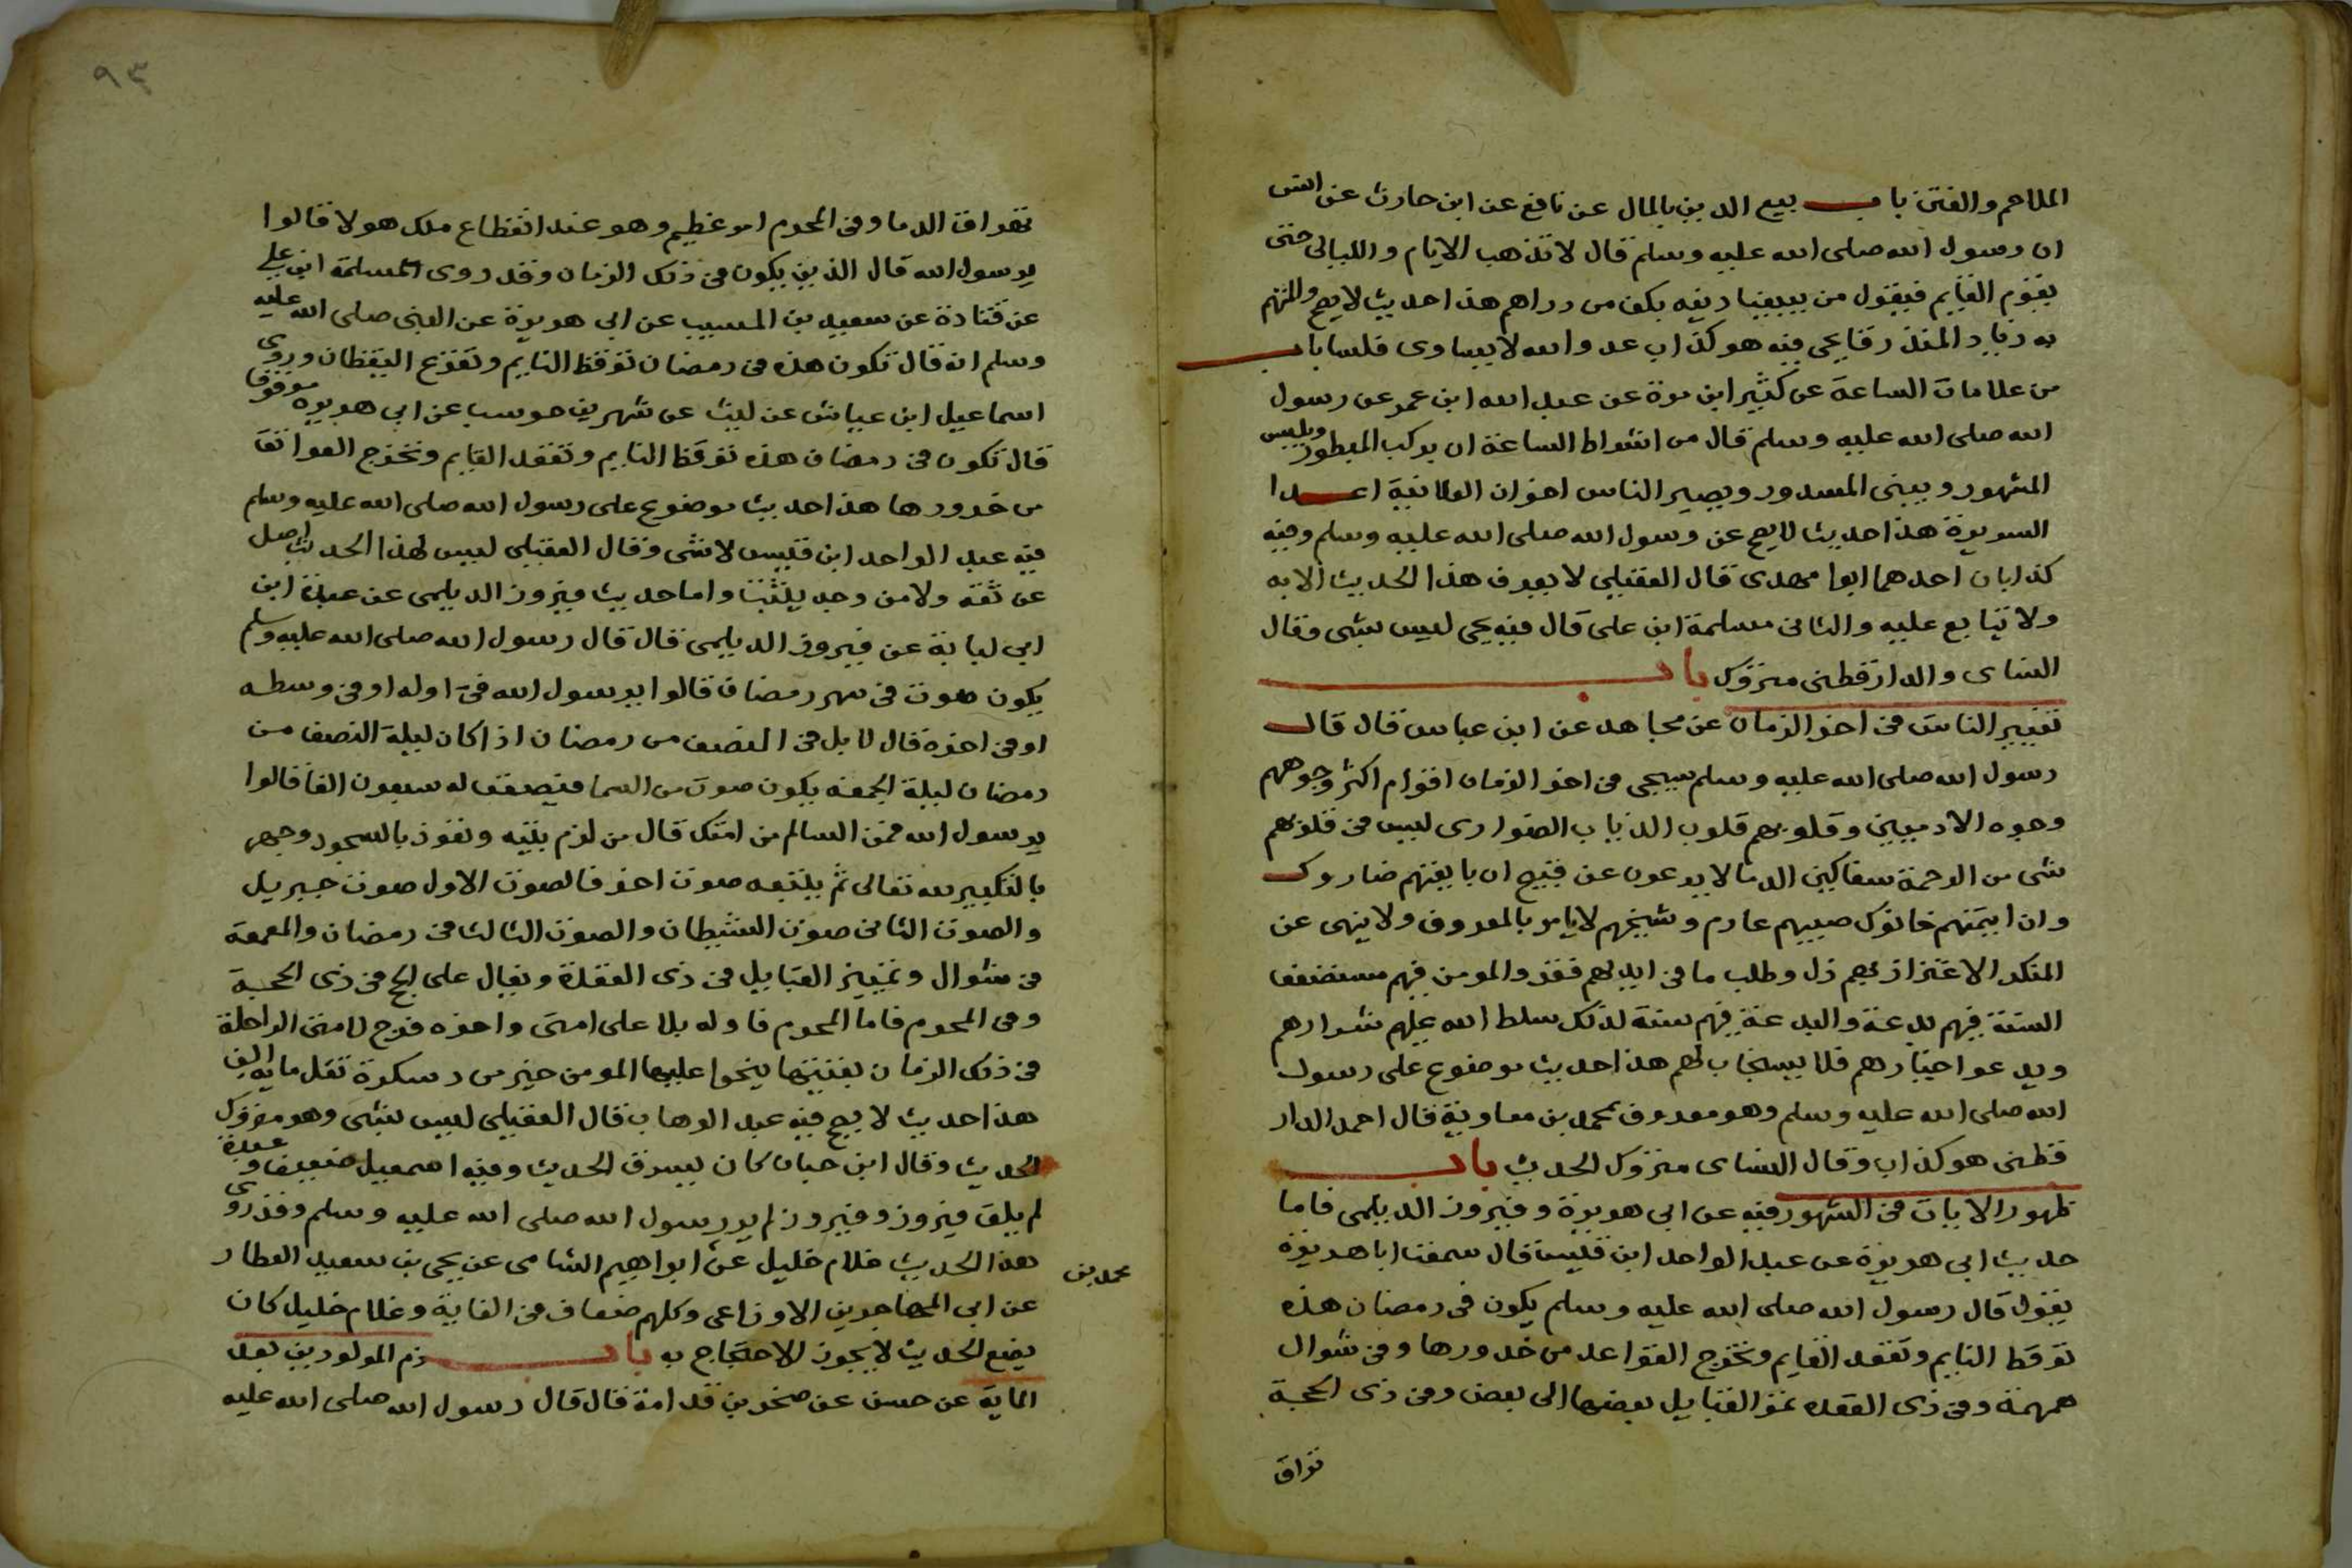 الملاحم والفتن باب بيع الدين بالمال عن نافع عن ابن حارث عن انس
ان رسول الله صلى الله عليه وسلم قال لا تذهب الايام والليالى حتى
يقوم القايم فيقول من يبيعنا دينه بكف من دراهم هذا حديث لا يصح والمتهم
به زياد المنذر قا يحيى فيه هو كذاب عدو الله لا يساوى فلسا باب
من علامات الساعة عن كثير ابن مرة عن عبد الله ابن عمر عن رسول
الله صلى الله عليه وسلم قال من اشراط الساعة ان يركب المنظور ويلبس
المشهور ويبنى المسدور ويصير الناس اخوان العلانية اعدا
السريرة هذا حديث لا يصح عن رسول الله صلى الله عليه وسلم وفيه
كذابان احدهما ابوا مهدى قال العقيلى لا يعرف هذا الحديث الا به
ولا يتابع عليه والثانى مسلمة ابن على قال فيه يحيى ليس بشى وقال
النساى والدارقطنى متروك باب
تغيير الناس فى اخر الزمان عن مجاهد عن ابن عباس قال قال
رسول الله صلى الله عليه وسلم سيجى فى اخر الزمان اقوام اكثر وجوههم
وجوه الادميين وقلوبهم قلوب الذياب الضوارى ليس فى قلوبهم
شى من الرحمة سفاكين الدما لا يرعون عن قبيح ان بايعتهم ضاروك
وان ايمنتهم خانوك صبيهم عارم وشيخهم لا يامر بالمعروف ولا ينهى عن
المنكر الاغتزاز بهم ذل وطلب ما فى ايديهم فقر والمومن فيهم مستضعف
السنة فيهم بدعة والبدعة فيهم سنة لذلك سلط الله عليهم شرارهم
ويدعوا خيارهم فلا يستجاب لهم هذا حديث موضوع على رسول
الله صلى الله عليه وسلم وهو معروف بمحمد بن معاوية قال احمد الدار
قطنى هو كذاب وقال النساى متروك الحديث باب
ظهور الايات فى الشهور فيه عن ابى هريرة وفيروز الديلمى فاما
حديث ابى هريرة عن عبد الواحد ابن قيس قال سمعت ابا هريرة
يقول قال رسول الله صلى الله عليه وسلم يكون فى رمضان هذه
توقظ النايم وتقعد القايم وتخرج القواعد من خدورها وفى شوال
همهمة وفى ذى القعده تمر القبايل بعضها الى بعض وفى ذى الحجة
تراق
٩٣
تهراق الدما وفى المحرم امر عظيم وهو عند انقطاع ملك هولا قالوا
يرسول الله قال الذين يكون فى ذلك الزمان وقد روى المسلمة ابن على
عن قتادة عن سعيد بن المسيب عن ابى هريرة عن النبى صلى الله عليه
وسلم انه قال تكون هذه فى رمضان توقظ النايم وتفزع اليقظان وروى
اسماعيل ابن عياش عن ليث عن شهر بن حوسب عن ابى هريرة موقوفا
قال تكون فى رمضان هذه توقظ النايم وتقعد القايم وتخرج العواتق
من خدورها هذا حديث موضوع على رسول الله صلى الله عليه وسلم
فيه عبد الواحد ابن قليس لا شى وقال العقيلى ليس لهذا الحديث اصل
عن ثقة ولا من وجه يثبت واما حديث فيروز الديلمى عن عبدة ابن
ابى لبابة عن فيروز الديلمى قال قال رسول الله صلى الله عليه وسلم
يكون صوت فى شهر رمضان قالوا يرسول الله فى اوله او فى وسطه
او فى اخره قال لا بل فى النصف من رمضان اذا كان ليلة النصف من
رمضان ليلة الجمعه يكون صوت من السما فيصعق له سبعون الفا قالوا
يرسول الله فمن السالم من امتك قال من لزم بيته وتعوذ بالسجود وجهر
بالتكبير لله تعالى ثم يتبعه صوت اخر فالصوت الاول صوت جبريل
والصوت الثانى صوت الشيطان والصوت الثالث فى رمضان والمعمعة
فى شوال وتمييز القبايل فى ذى القعدة ويغال على الحج فى ذى الحجة
وفى المحرم فاما المحرم فاوله بلا على امتى واخره فرج لامتى الراحلة
فى ذلك الزمان بقتبتها ينحوا عليها المومن خير من دسكرة تغل مايه الف
هذا حديث لا يصح فيه عبد الوهاب قال العقيلى ليس بشى وهو متروك
الحديث وقال ابن حبان كان يسرق الحديث وفيه اسمعيل ضعيف وعبدة
لم يلق فيروز وفيروز لم ير رسول الله صلى الله عليه وسلم وقد روى
هذا الحديث غلام خليل عن ابراهيم الشامى عن يحيى بن سعيد العطار
محمد بن
عن ابى المهاجرين الاوزاعى وكلهم ضعاف فى الغاية وغلام خليل كان
يضع الحديث لا يجوز الاحتجاج به باب ذم المولودين بعد
الماية عن حسن عن صخر بن قدامة قال قال رسول الله صلى الله عليه